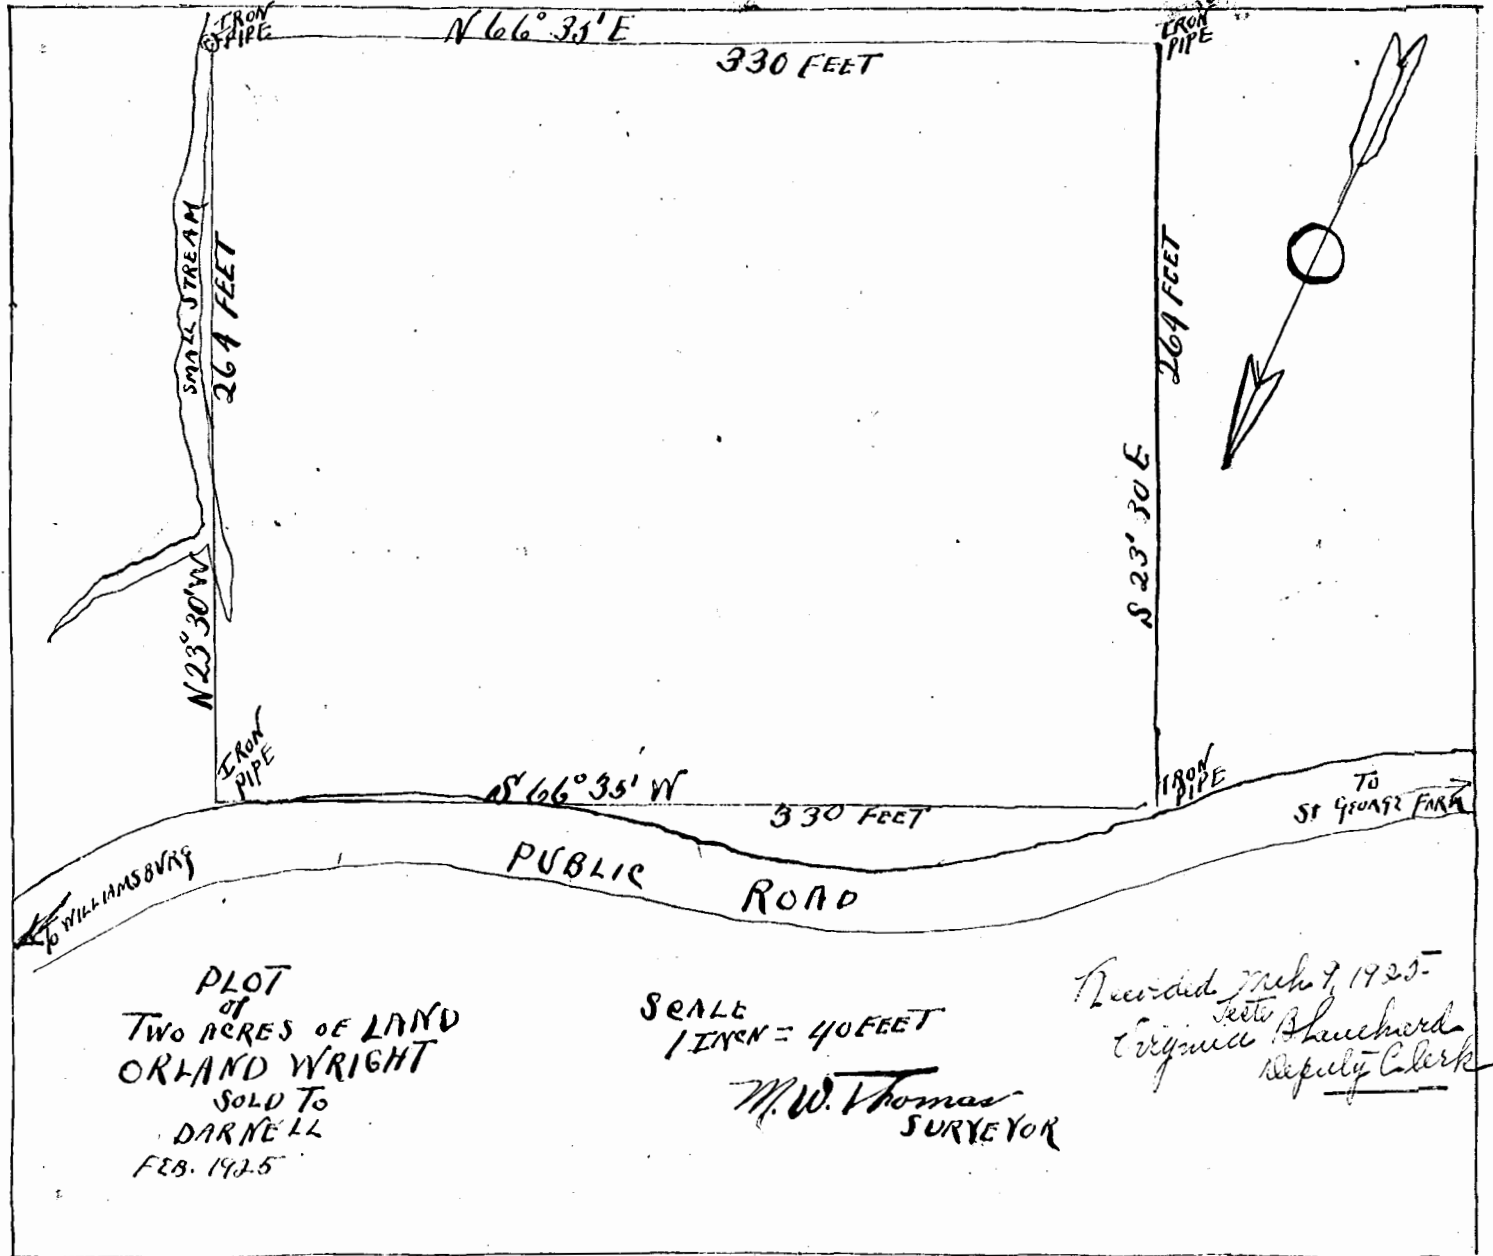 IRON
PIPE
N 66° 35' E
330 FEET
IRON
PIPE
SMALL STREAM
264 FEET
N 23° 30' W
264 FEET
S 23' 30 E
IRON
PIPE
S 66° 35' W
330 FEET
IRON
PIPE
TO
ST GEORGE FARM
TO WILLIAMSBURG
PUBLIC ROAD
PLOT
of
TWO ACRES OF LAND
ORLAND WRIGHT
SOLD TO
DARNELL
FEB. 1925
SCALE
1 INCH = 40 FEET
M. W. Thomas
SURVEYOR
Recorded Mch 9, 1925
Teste
Virginia Blanchard
Deputy Clerk